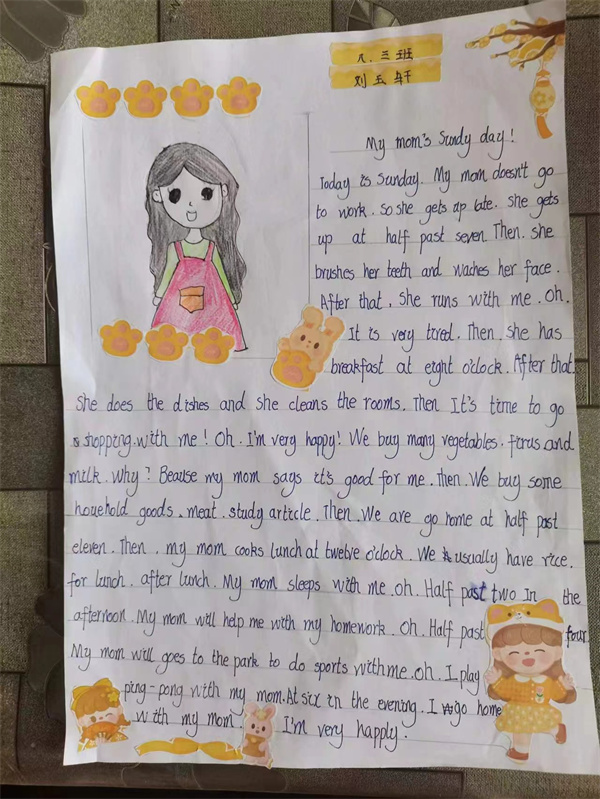 八.三班
刘玉轩
My mom's Sundy day!
Today is Sunday. My mom doesn't go
to work. So she gets up late. She gets
up at half past seven. Then. she
brushes her teeth and waches her face.
After that. She runs with me. Oh.
It is very tired. Then. She has
breakfast at eight o'clock. After that.
She does the dishes and she cleans the rooms. Then It's time to go
shopping with me! Oh. I'm very happy! We buy many vegetables. firus and
milk. Why? Beause my mom says it's good for me. Then. We buy some
household goods. meat. study article. Then. We are go home at half past
eleven. Then. my mom cooks lunch at twelve o'clock. We usually have rice.
for lunch. after lunch. My mom sleeps with me. oh. Half past two In the
afternoon. My mom will help me with my homework. Oh. Half past four
My mom will goes to the park to do sports with me. oh. I play
ping-pong with my mom. At six in the evening. I go home
with my mom I'm very happly.